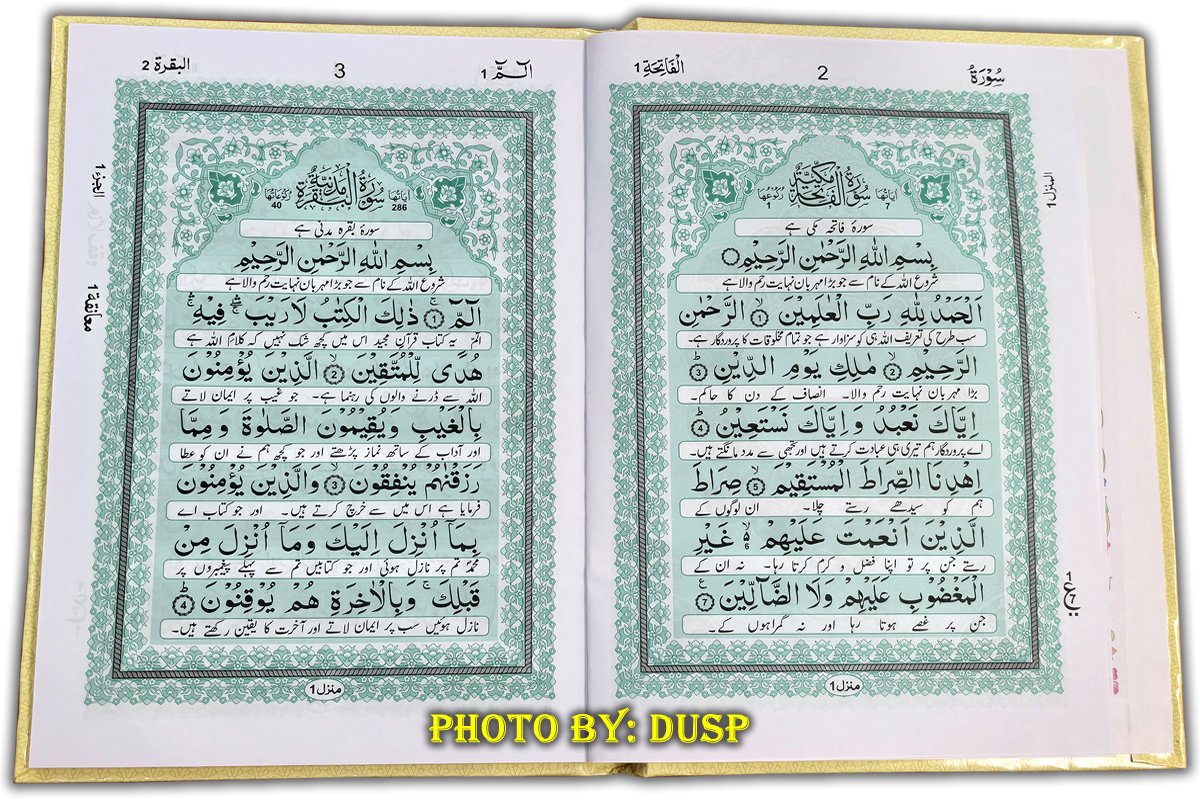 سُوْرَةُ
2
اَلْفَاتِحَة 1
سُوْرَةُ الْفَاتِحَةِ مَكِّيَّةٌ
اٰیاتُهَا 7
رُكُوْعُهَا 1
سورۂ فاتحہ مکی ہے
بِسْمِ اللّٰهِ الرَّحْمٰنِ الرَّحِیْمِ
شروع اللہ کے نام سے جو بڑا مہربان نہایت رحم والا ہے
اَلْحَمْدُ لِلّٰهِ رَبِّ الْعٰلَمِیْنَ ۙ 1 الرَّحْمٰنِ
سب طرح کی تعریف اللہ ہی کو سزاوار ہے جو تمام مخلوقات کا پروردگار ہے۔
الرَّحِیْمِ ۙ 2 مٰلِكِ یَوْمِ الدِّیْنِ ؕ 3
بڑا مہربان نہایت رحم والا۔ انصاف کے دن کا حاکم۔
اِیَّاكَ نَعْبُدُ وَ اِیَّاكَ نَسْتَعِیْنُ ؕ 4
اے پروردگار ہم تیری ہی عبادت کرتے ہیں اور تجھی سے مدد مانگتے ہیں۔
اِهْدِنَا الصِّرَاطَ الْمُسْتَقِیْمَ ۙ 5 صِرَاطَ
ہم کو سیدھے رستے چلا۔ ان لوگوں کے
الَّذِیْنَ اَنْعَمْتَ عَلَیْهِمْ ۙ۬ غَیْرِ
رستے جن پر تو اپنا فضل و کرم کرتا رہا۔ نہ ان کے
الْمَغْضُوْبِ عَلَیْهِمْ وَلَا الضَّآلِّیْنَ 7
جن پر غصے ہوتا رہا اور نہ گمراہوں کے۔
منزل 1
المنزل 1
البقرة 2
3
الٓمّٓ 1
الجزء 1
معانقة 1
سُوْرَةُ الْبَقَرَةِ مَدَنِیَّةٌ
اٰیاتُهَا 286
رُكُوْعَاتُهَا 40
سورۂ بقرہ مدنی ہے
بِسْمِ اللّٰهِ الرَّحْمٰنِ الرَّحِیْمِ
شروع اللہ کے نام سے جو بڑا مہربان نہایت رحم والا ہے
الٓمّٓ ۚ 1 ذٰلِكَ الْكِتٰبُ لَا رَیْبَ ۛۖ فِیْهِ ۛۚ
الٓمٓ یہ کتاب قرآن مجید اس میں کچھ شک نہیں کہ کلامِ اللہ ہے
هُدًی لِّلْمُتَّقِیْنَ ۙ 2 الَّذِیْنَ یُؤْمِنُوْنَ
اللہ سے ڈرنے والوں کی رہنما ہے۔ جو غیب پر ایمان لاتے
بِالْغَیْبِ وَیُقِیْمُوْنَ الصَّلٰوةَ وَ مِمَّا
اور آداب کے ساتھ نماز پڑھتے اور جو کچھ ہم نے ان کو عطا
رَزَقْنٰهُمْ یُنْفِقُوْنَ ۙ 3 وَالَّذِیْنَ یُؤْمِنُوْنَ
فرمایا ہے اس میں سے خرچ کرتے ہیں۔ اور جو کتاب اے
بِمَاۤ اُنْزِلَ اِلَیْكَ وَ مَاۤ اُنْزِلَ مِنْ
محمدؐ تم پر نازل ہوئی اور جو کتابیں تم سے پہلے پیغمبروں پر
قَبْلِكَ ۚ وَبِالْاٰخِرَةِ هُمْ یُوْقِنُوْنَ ؕ 4
نازل ہوئیں سب پر ایمان لاتے اور آخرت کا یقین رکھتے ہیں۔
منزل 1
PHOTO BY: DUSP